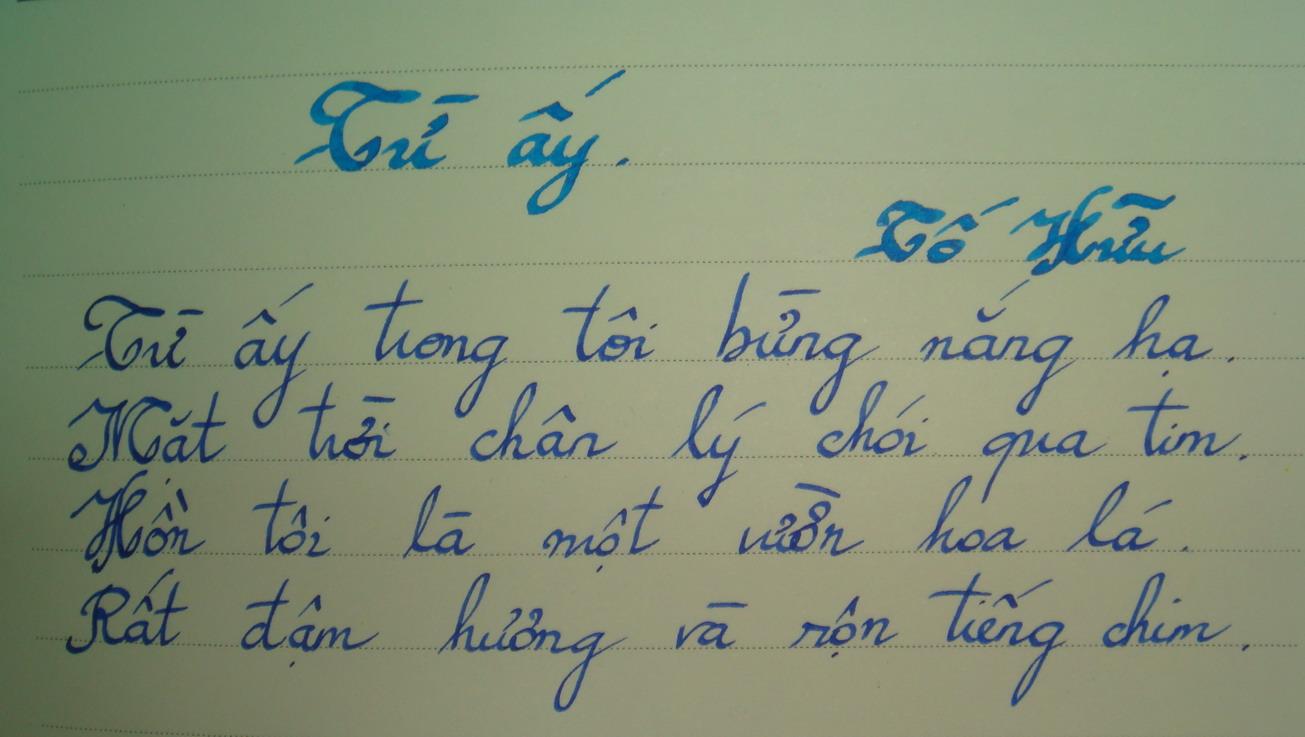 Từ ấy.
Tố Hữu
Từ ấy trong tôi bừng nắng hạ.
Mặt trời chân lý chói qua tim.
Hồn tôi là một vườn hoa lá.
Rất đậm hương và rộn tiếng chim.